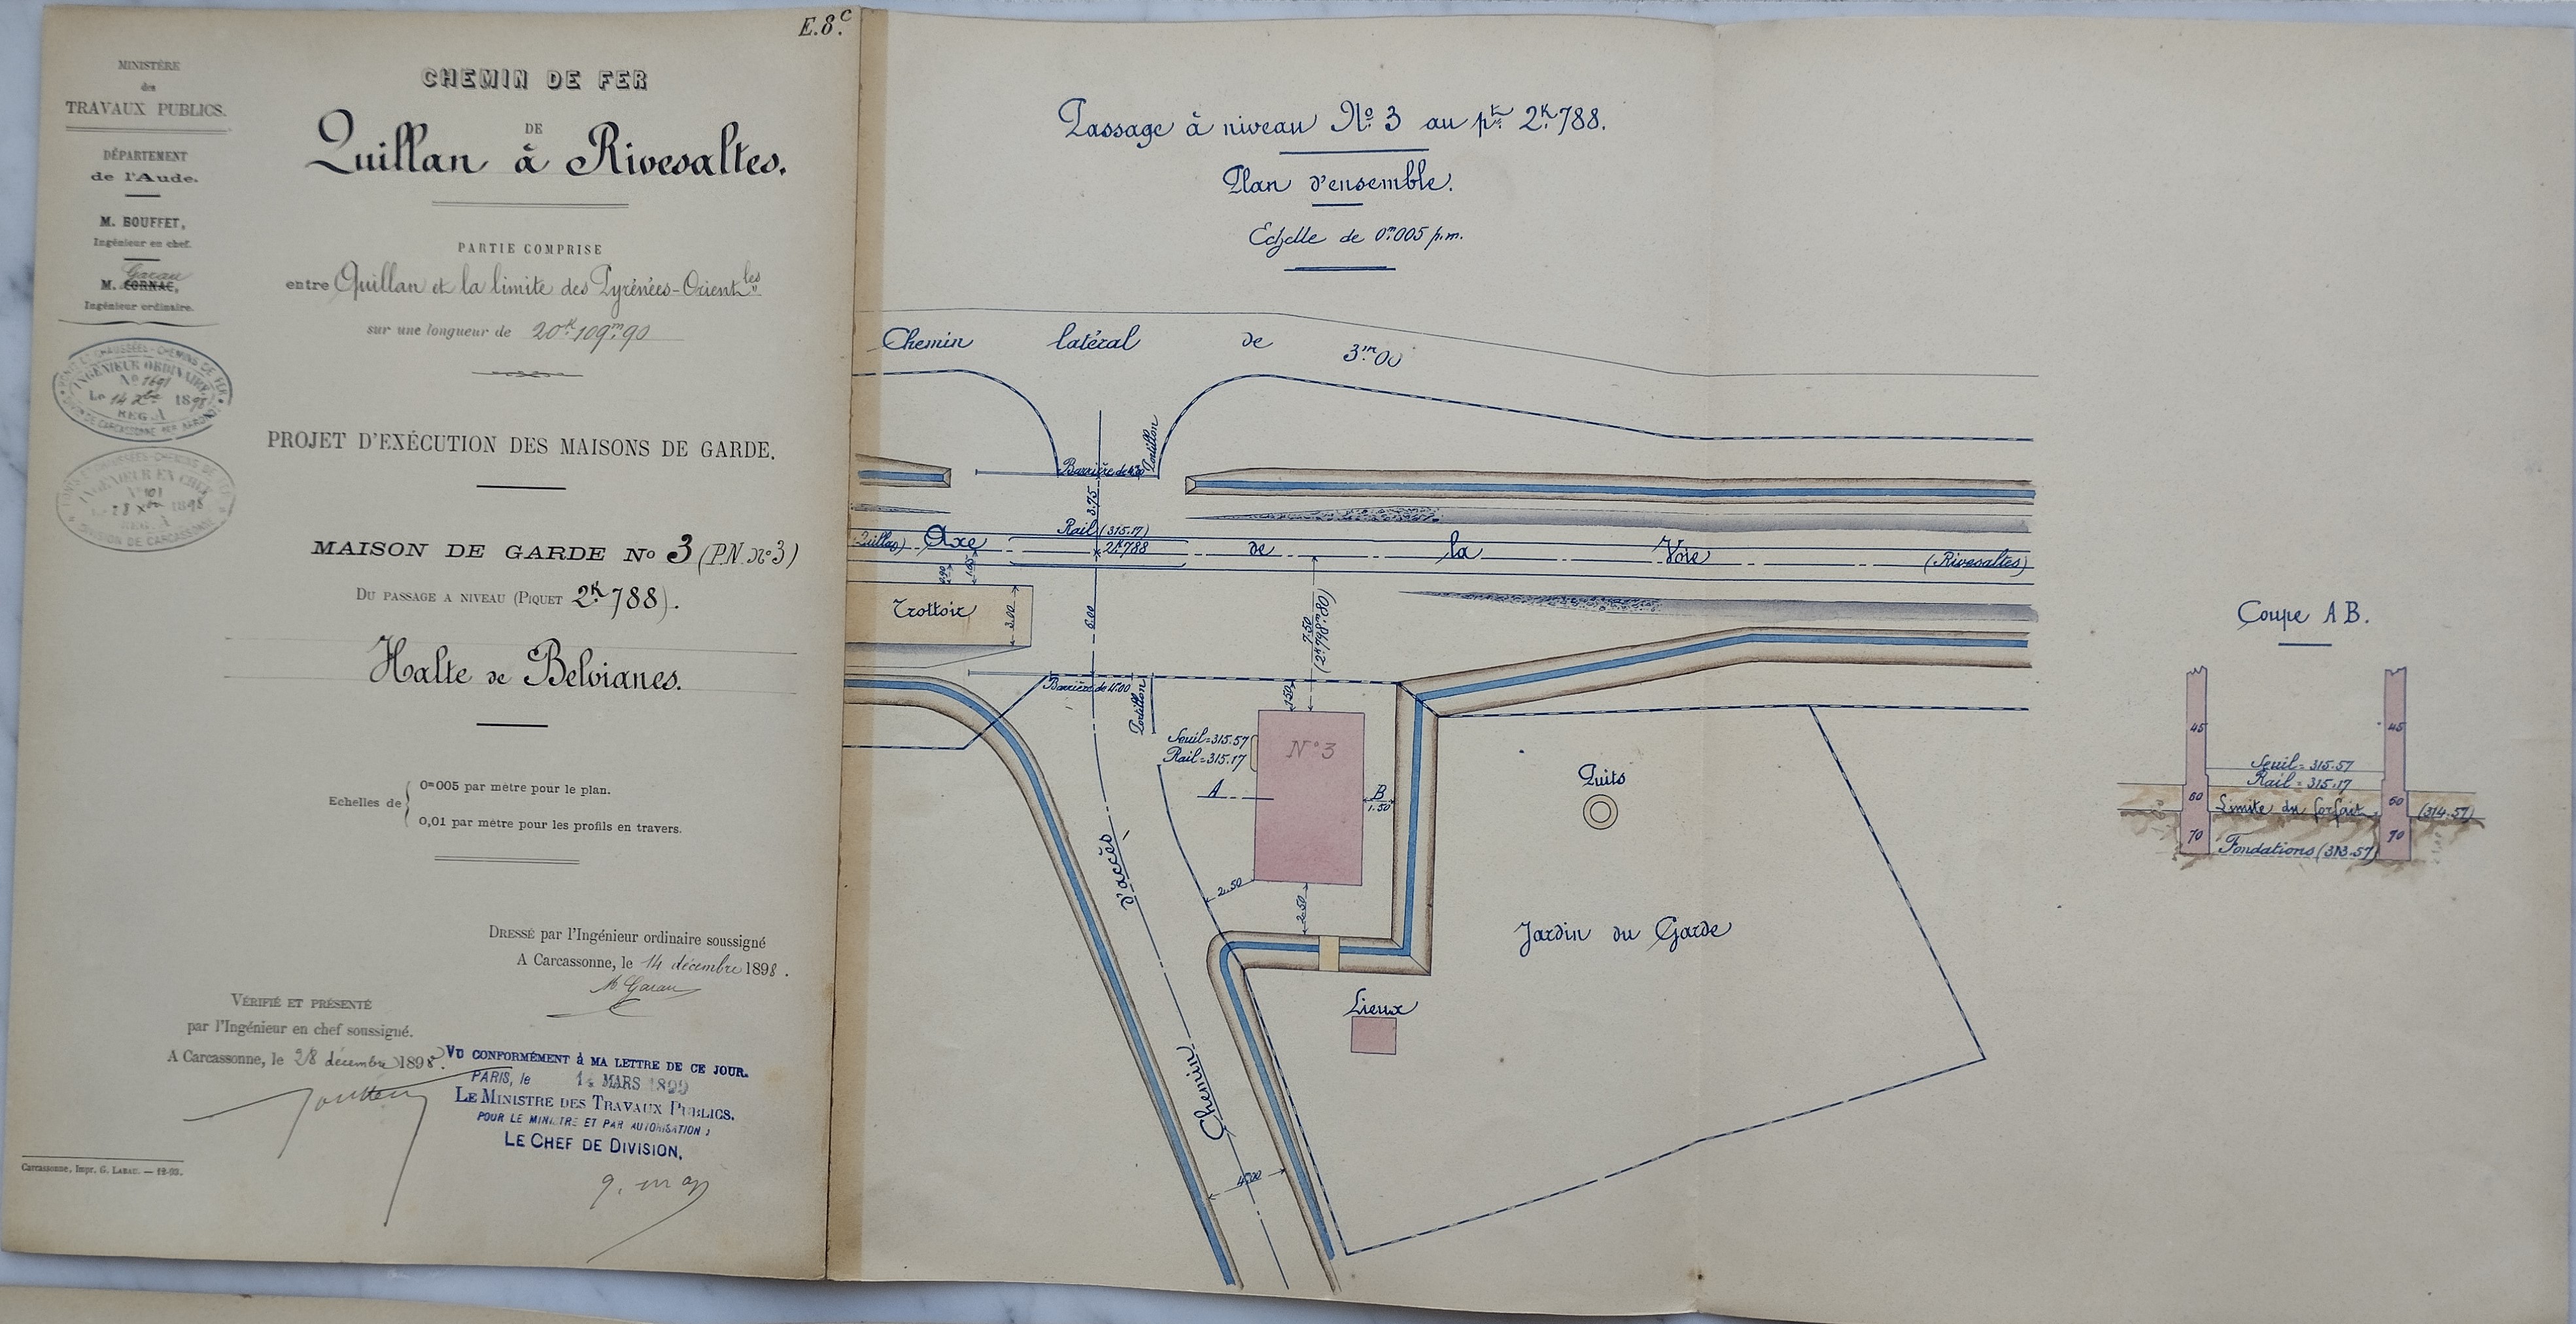 E.8.c
MINISTÈRE
des
TRAVAUX PUBLICS.
DÉPARTEMENT
de l'Aude.
M. BOUFFET,
Ingénieur en chef.
Garau
M. CORNAC,
Ingénieur ordinaire.
PONTS ET CHAUSSÉES - CHEMINS DE FER
INGÉNIEUR ORDINAIRE
No 1691
Le 14 Xbre 1898
REG. A
INGÉNIEUR EN CHEF
No 101
Le 28 Xbre 1898
REG. A
DIVISION DE CARCASSONNE
CHEMIN DE FER
DE
Quillan à Rivesaltes.
PARTIE COMPRISE
entre Quillan et la limite des Pyrénées-Orientles
sur une longueur de 20k109m90
PROJET D'EXÉCUTION DES MAISONS DE GARDE.
MAISON DE GARDE No 3 (P.N. no 3)
DU PASSAGE A NIVEAU (PIQUET 2k788).
Halte de Belvianes.
Echelles de
0m005 par mètre pour le plan.
0,01 par mètre pour les profils en travers.
DRESSÉ par l'Ingénieur ordinaire soussigné
A Carcassonne, le 14 décembre 1898.
M. Garau
VÉRIFIÉ ET PRÉSENTÉ
par l'Ingénieur en chef soussigné.
A Carcassonne, le 28 décembre 1898.
VU CONFORMÉMENT à MA LETTRE DE CE JOUR.
PARIS, le 14 MARS 1899
LE MINISTRE DES TRAVAUX PUBLICS.
POUR LE MINISTRE ET PAR AUTORISATION :
LE CHEF DE DIVISION,
Carcassonne, Impr. G. LABAU. — 12-93.
Passage à niveau No 3 au pt 2k788.
Plan d'ensemble.
Echelle de 0m005 p.m.
Chemin latéral de 3m00
Barrière de 4.00
Portillon
3.75
Rail (315.17)
2k788
(Quillan) Axe de la Voie (Rivesaltes)
0.90
1.65
Trottoir
3.00
6.00
7.50
(2k798m80)
Barrière de 4.00
Portillon
1.50
Seuil=315.57
Rail=315.17
N°3
A
B
1.50
2.50
2.50
Puits
Jardin du Garde
Lieux
Chemin d'accès
4.00
Coupe A B.
45
45
Seuil=315.57
Rail=315.17
60
60
Limite du forfait (314.57)
70
70
Fondations (313.57)